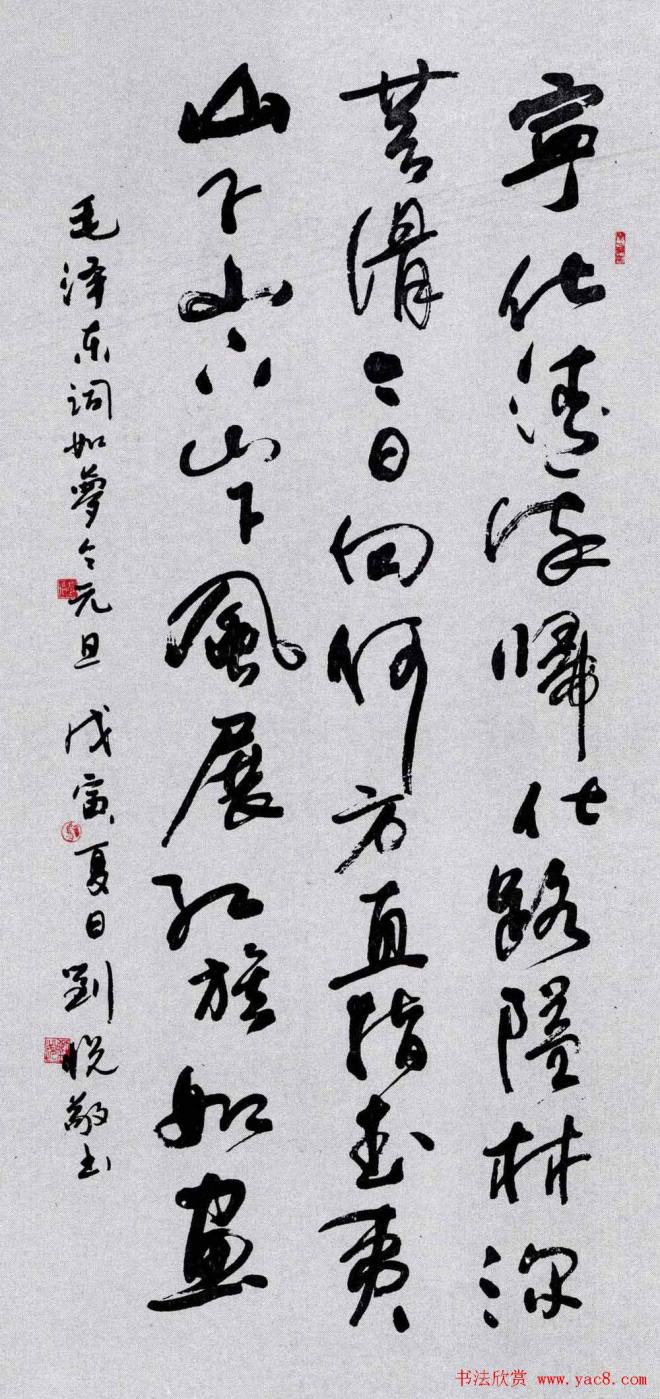 寧化清流歸化路隘林深
苔滑今日向何方直指武夷
山下山下山下風展紅旗如畫
毛澤東詞如夢令元旦 戊寅夏日劉悦敬書
书法欣赏 www.yac8.com